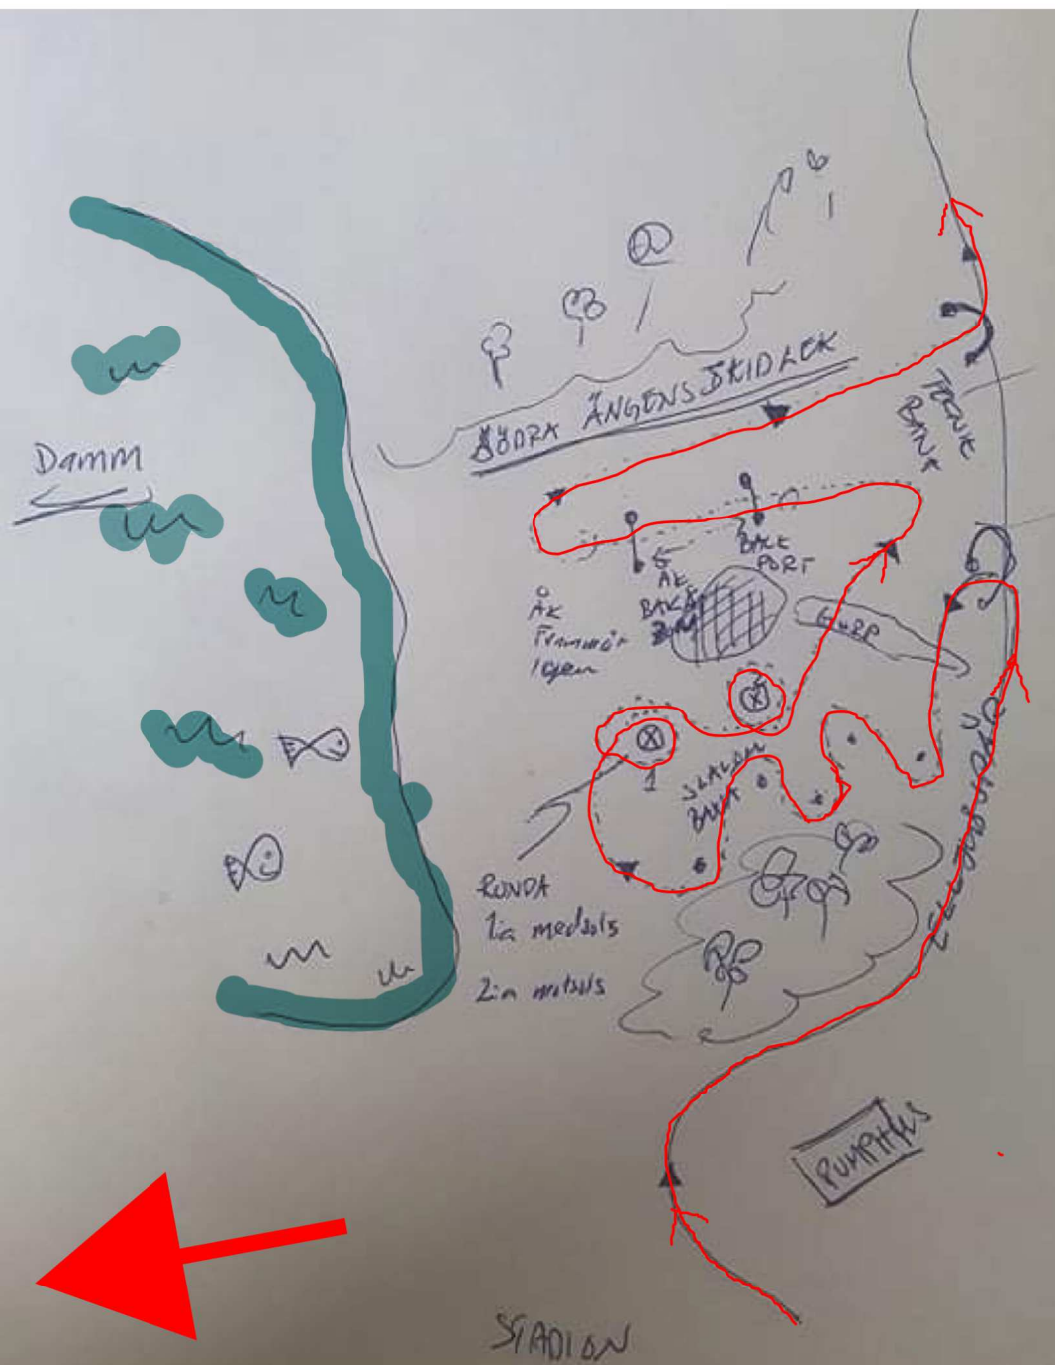 SÖDRA ÄNGENS SKIDLEK
TEKNIK
BANA
Damm
BACK
PORT
ÅK
BAKÅ
ÅK
Framför
igen
GURP
1
SLALOM
BANA
ELLJUSSPÅR
RUNDA
1:a medsols
2:a motsols
PUMPHUS
STADION